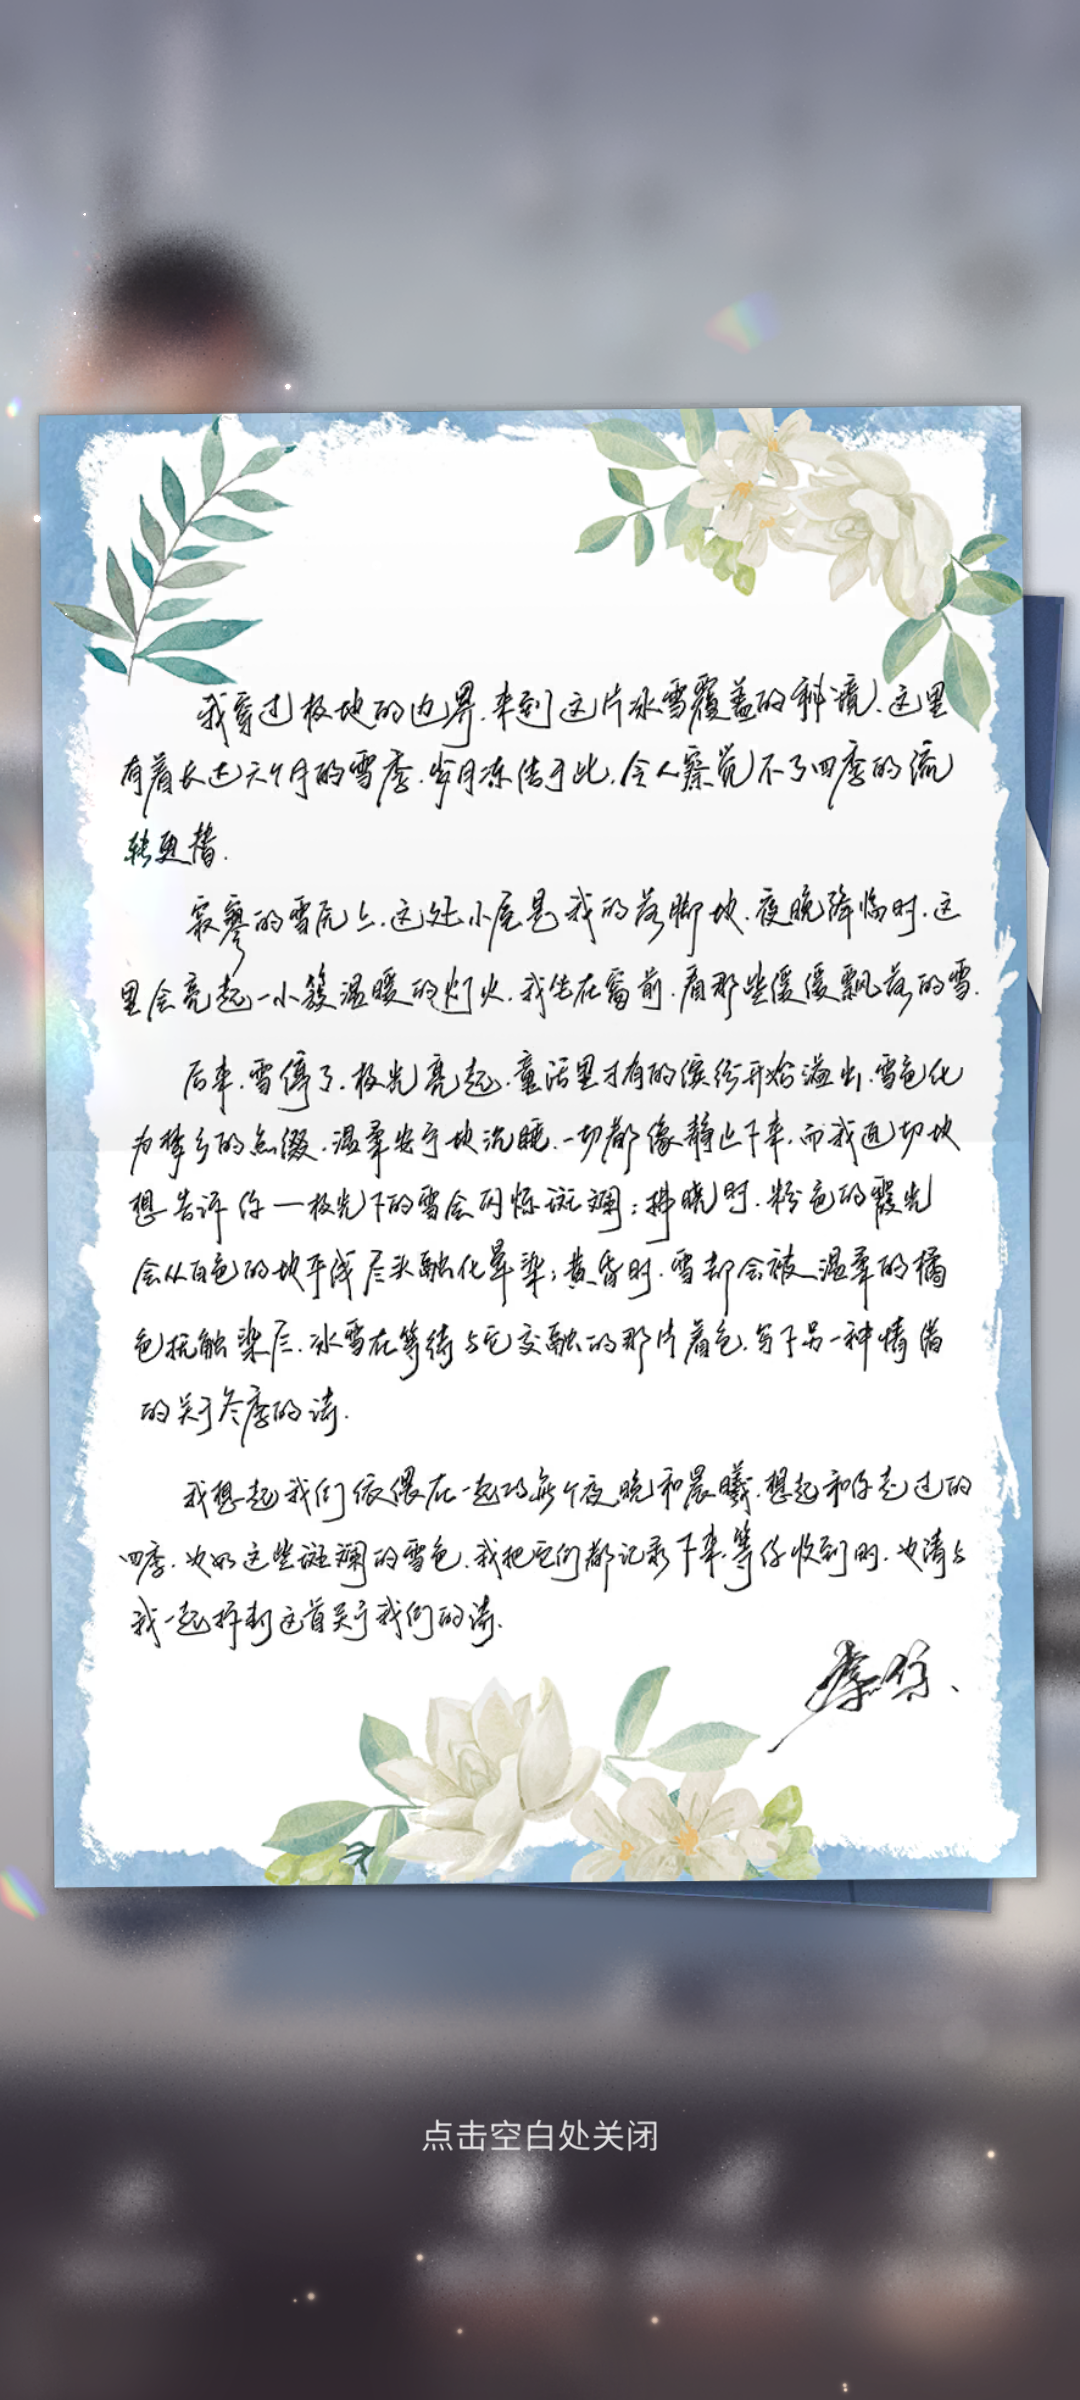 我穿过极地的边界，来到这片冰雪覆盖的秘境，这里
有着长达六个月的雪季，岁月冻结于此，令人察觉不了四季的流
转更替。
寂寥的雪原上，这处小屋是我的落脚地，夜晚降临时，这
里会亮起一小簇温暖的灯火，我坐在窗前，看那些缓缓飘落的雪。
后来，雪停了，极光亮起，童话里才有的缤纷开始溢出，雪色化
为梦乡的点缀，温柔安宁地沉睡，一切都像静止下来，而我迫切地
想告诉你—极光下的雪会闪烁斑斓；拂晓时，粉色的霞光
会从白色的地平线尽头融化晕染；黄昏时，雪却会被温柔的橘
色抚触染尽，冰雪在等待与它交融的那片着色，写下另一种情语
的关于冬季的诗。
我想起我们依偎在一起的每个夜晚和晨曦，想起和你走过的
四季，也如这些斑斓的雪色，我把它们都记录下来，等你收到时，也请与
我一起拆封这首关于我们的诗。
点击空白处关闭